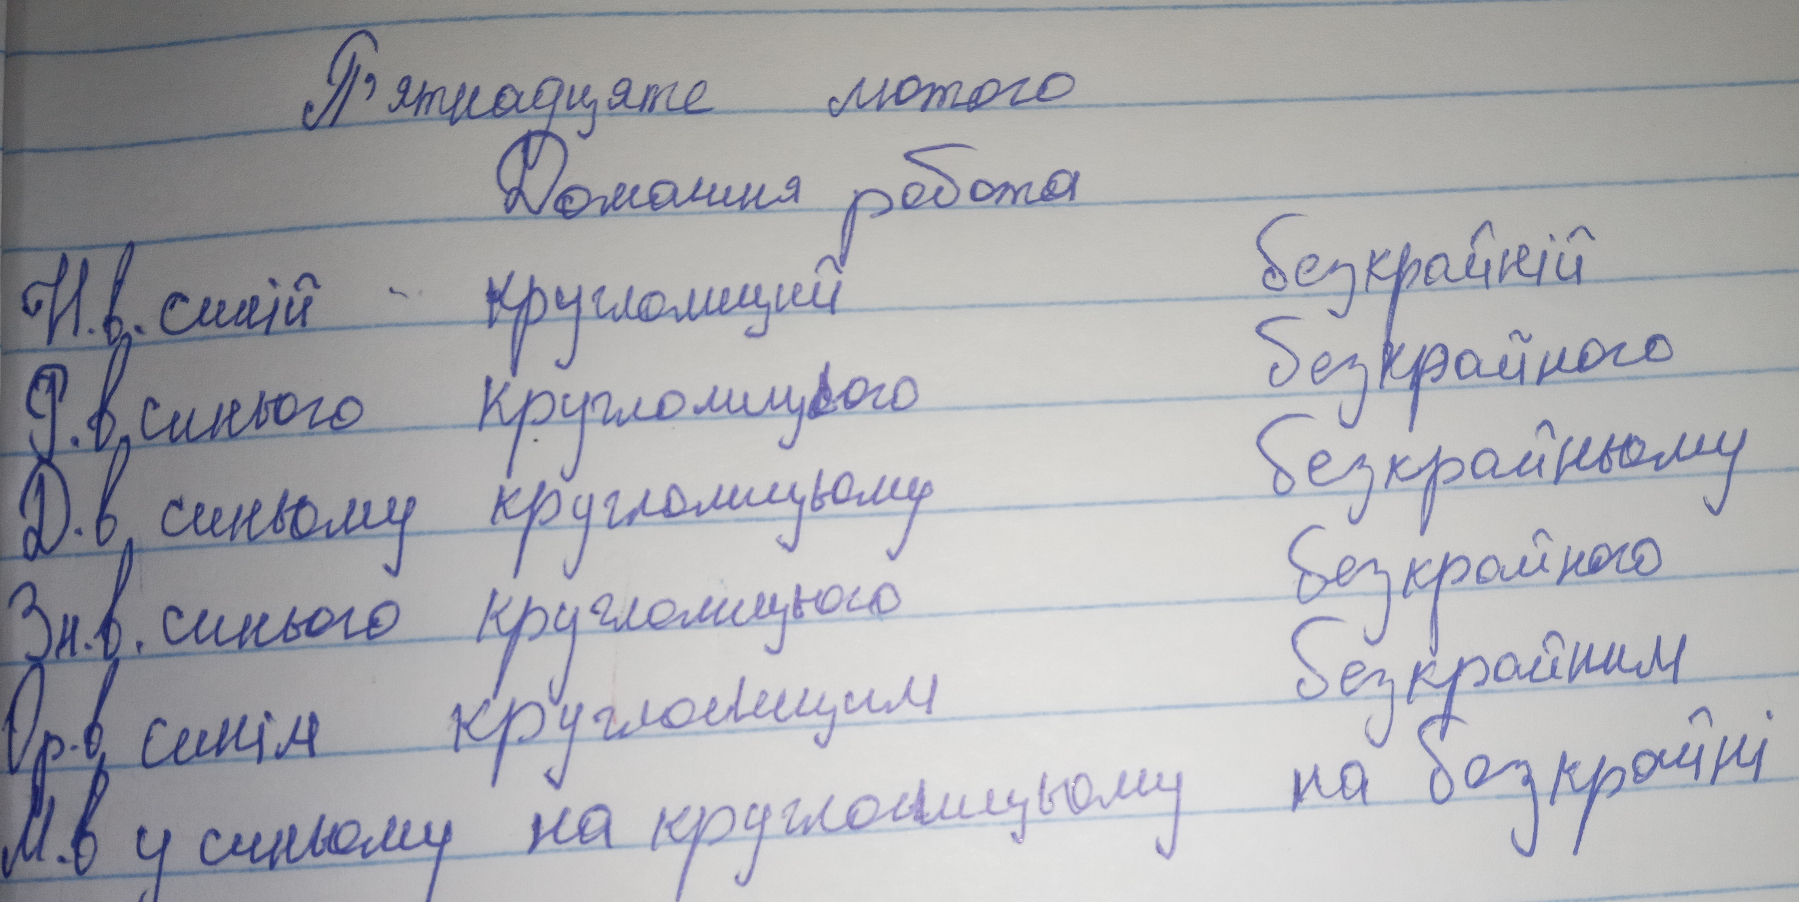 П'ятнадцяте лютого
Домашня робота
Н.в. синій - круглолиций безкрайній
Р.в. синього круглолицього безкрайного
Д.в. синьому круглолицьому безкрайньому
Зн.в. синього круглолицього безкрайного
Ор.в. синім круглолицим безкрайним
М.в у синьому на круглолицьому на безкрайні